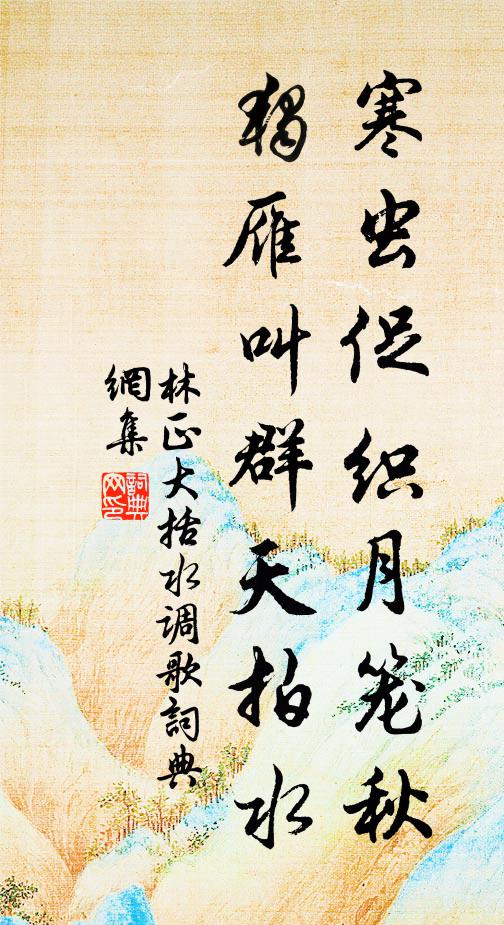 寒虫促织月笼秋
独雁叫群天拍水
林正大括水调歌詞典
網集
詞典
网印